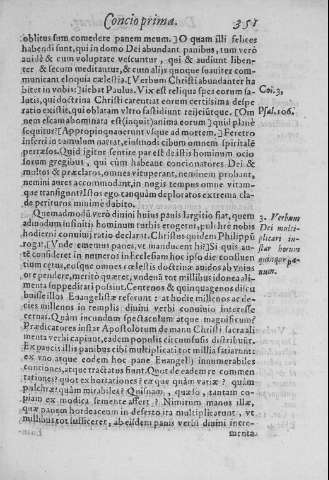 Concio prima. 351
oblitus sum comedere panem meum.] O quam illi felices
habendi sunt, qui in domo Dei abundant panibus, tum verò
auidè & cum voluptate vescuntur, qui & audiunt liben-
ter & secum meditantur, & cum alijs quoque suauiter com-
municant eloquia cælestia. [Verbum Christi abundanter ha
bitet in vobis] iubet Paulus. Vix est reliqua spes eorum sa-
lutis, qui doctrina Christi carentat eorum certissima despe
ratio existit, qui oblatam vltro fastidiunt reijciuntque. [Om
nem escam abominata est (inquit) anima eorum] quid planè
sequitur? [Appropinquauerunt vsque ad mortem.] Feretro
inserti in tumulum
perꝓsos. Quid igitur sentire par est de istis hominum ocio
sorum gregibus, qui cùm habeant concionatores Dei &
multos & præclaros, omnes vituperant, neminem probant,
nemini aures accommodant, in nugis tempus omne vitam-
que transigunt? Istos ego tanquam deploratos extrema cla-
de perituros minimè dubito.
Col. 3.
Psal. 106.
Quemadmodũ verò diuini huius panis largitio fiat, quem
admodum infinitis hominum turbis erogetur, pulchrè nobis
hodierni conuiuij ratio declarat. Christus quidem Philippũ
rogat, [Vnde ememus panes, vt manducent hi?] Si quis au-
tè consideret in
tium cœtus, eosque omnes cælestis doctrinæ auidos ab vno
ore pendere, meritò quæret, vndenã tot millibus idonea ali-
menta suppeditari possint. Centenos & quinquagenos discu
buisse illos Euangelistæ referunt: at hodie millenos ac de-
cies millenos in templis diuini verbi conuiuio interesse
cernas. Quàm iucundum spectaculum atque magnificum?
Prædicatores instar Apostolorum de manu Christi sacra ali-
menta verbi capiunt, eadem populis circumfusis distribuũt.
Ex paucis illis panibus cibi multiplicati tot millia satiarunt:
ex vno atque eodem hoc pane Euangelij innumerabiles
contiones, atque tractatus sunt. Quot de eadem re commen
tationes? quot exhortationes? ex æquè quàm variæ? quàm
pulchræ? quàm mirabiles? Quisnam, quæso, tantam co-
piam ex modica semente affert? Nimirum manus illæ,
quæ panem hordeaceum in deserto ita multiplicarunt, vt
millibus tot sufficeret, ab eisdem panis verbi diuini incre-
menta
3. Verbum
Dei multi-
plicari in-
star horum
quinque pa-
num.